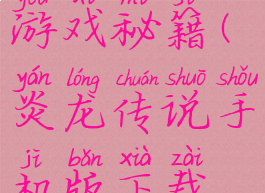 yóu xì mì jí
游戏秘籍(
yán lóng chuán shuō shǒu
炎龙传说手
jī bǎn xià zài
机版下载